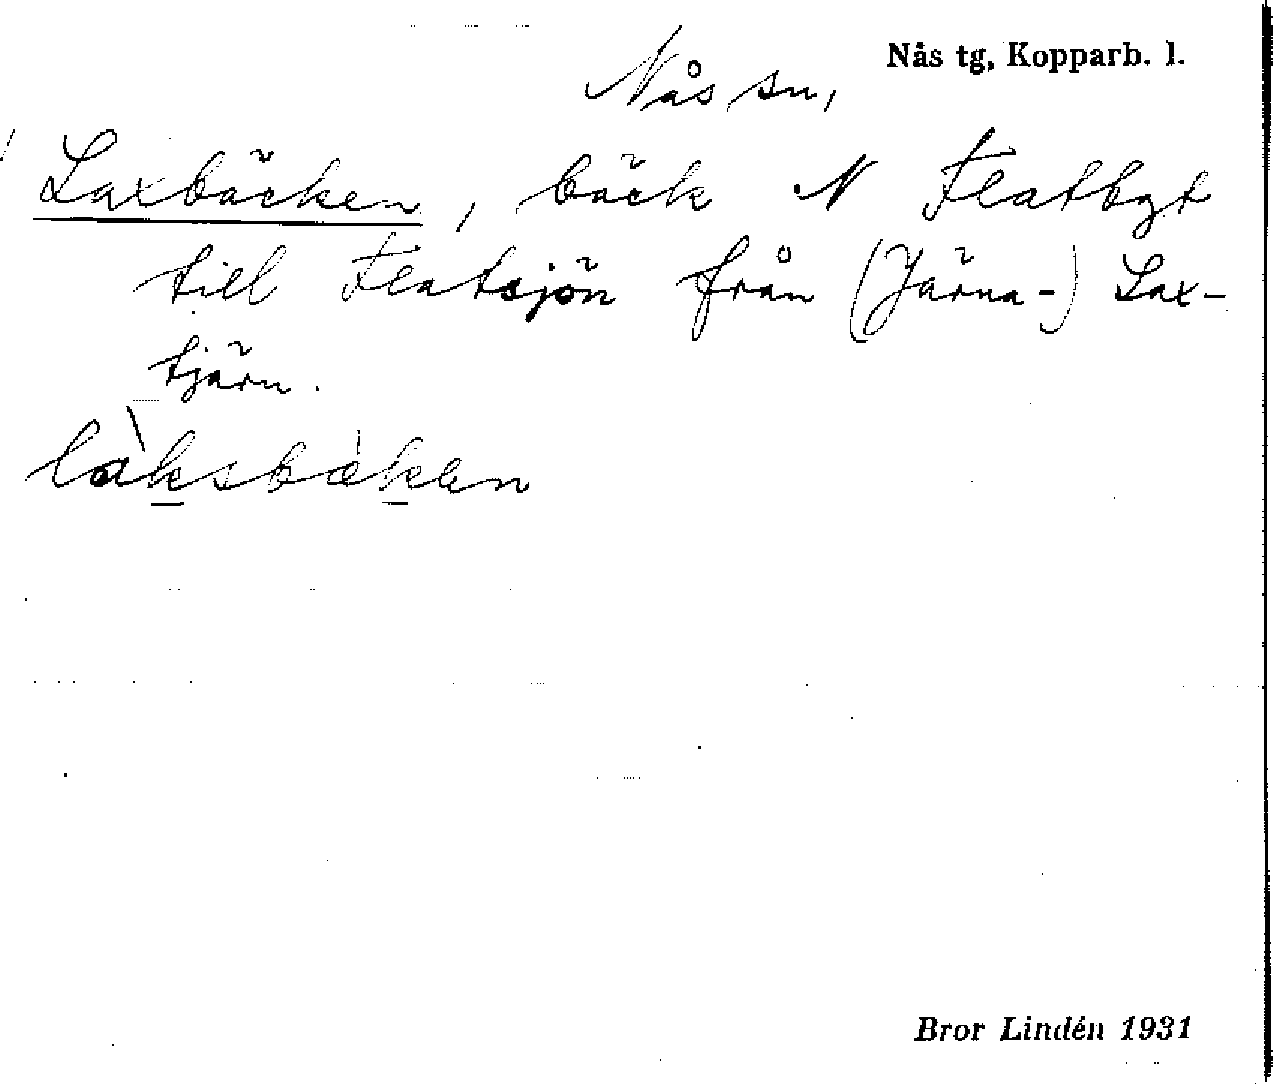 Nås tg, Kopparb. l.
Nås sn,
Laxbäcken, bäck N Flatbyt
till Flatsjön från (Järna-) Lax-
tjärn.
làksbæ̀kan
Bror Lindén 1931